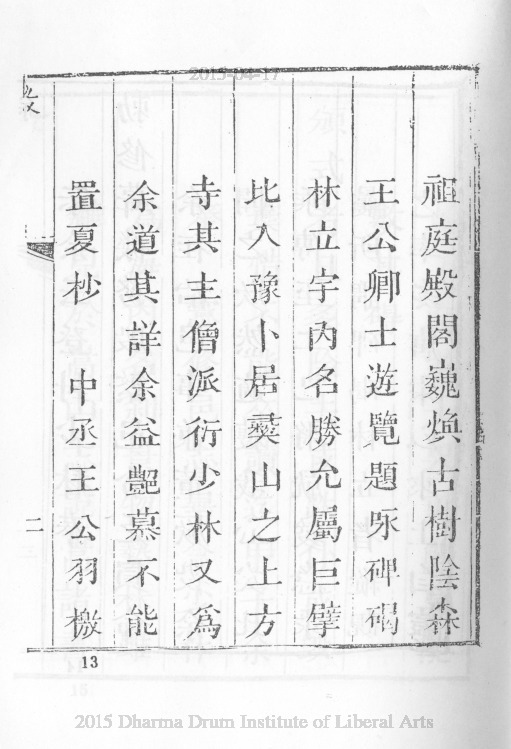 2015-04-17
祖庭殿閣巍煥古樹陰森
王公卿士遊覽題咏碑碣
林立宇內名勝允屬巨擘
比入豫卜居嵏山之上方
寺其主僧派衍少林又爲
余道其詳余益艷慕不能
置夏杪 中丞王公羽檄
二
13
2015 Dharma Drum Institute of Liberal Arts